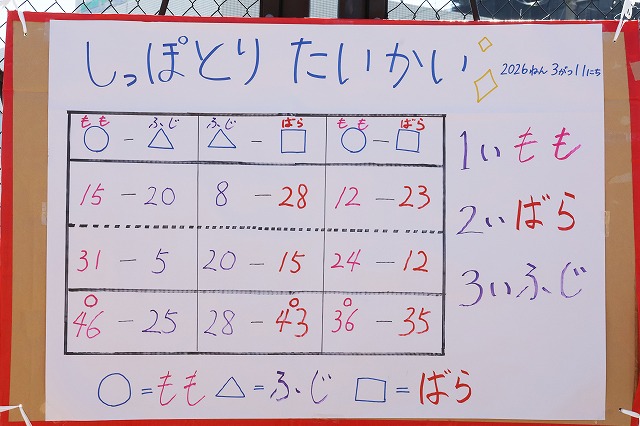 しっぽとり たいかい
2026ねん 3がつ11にち
もも ふじ ふじ ばら もも ばら
○ - △ △ - □ ○ - □
15 - 20 8 - 28 12 - 23
31 - 5 20 - 15 24 - 12
○ ○ ○
46 - 25 28 - 43 36 - 35
1い もも
2い ばら
3い ふじ
○ = もも △ = ふじ □ = ばら